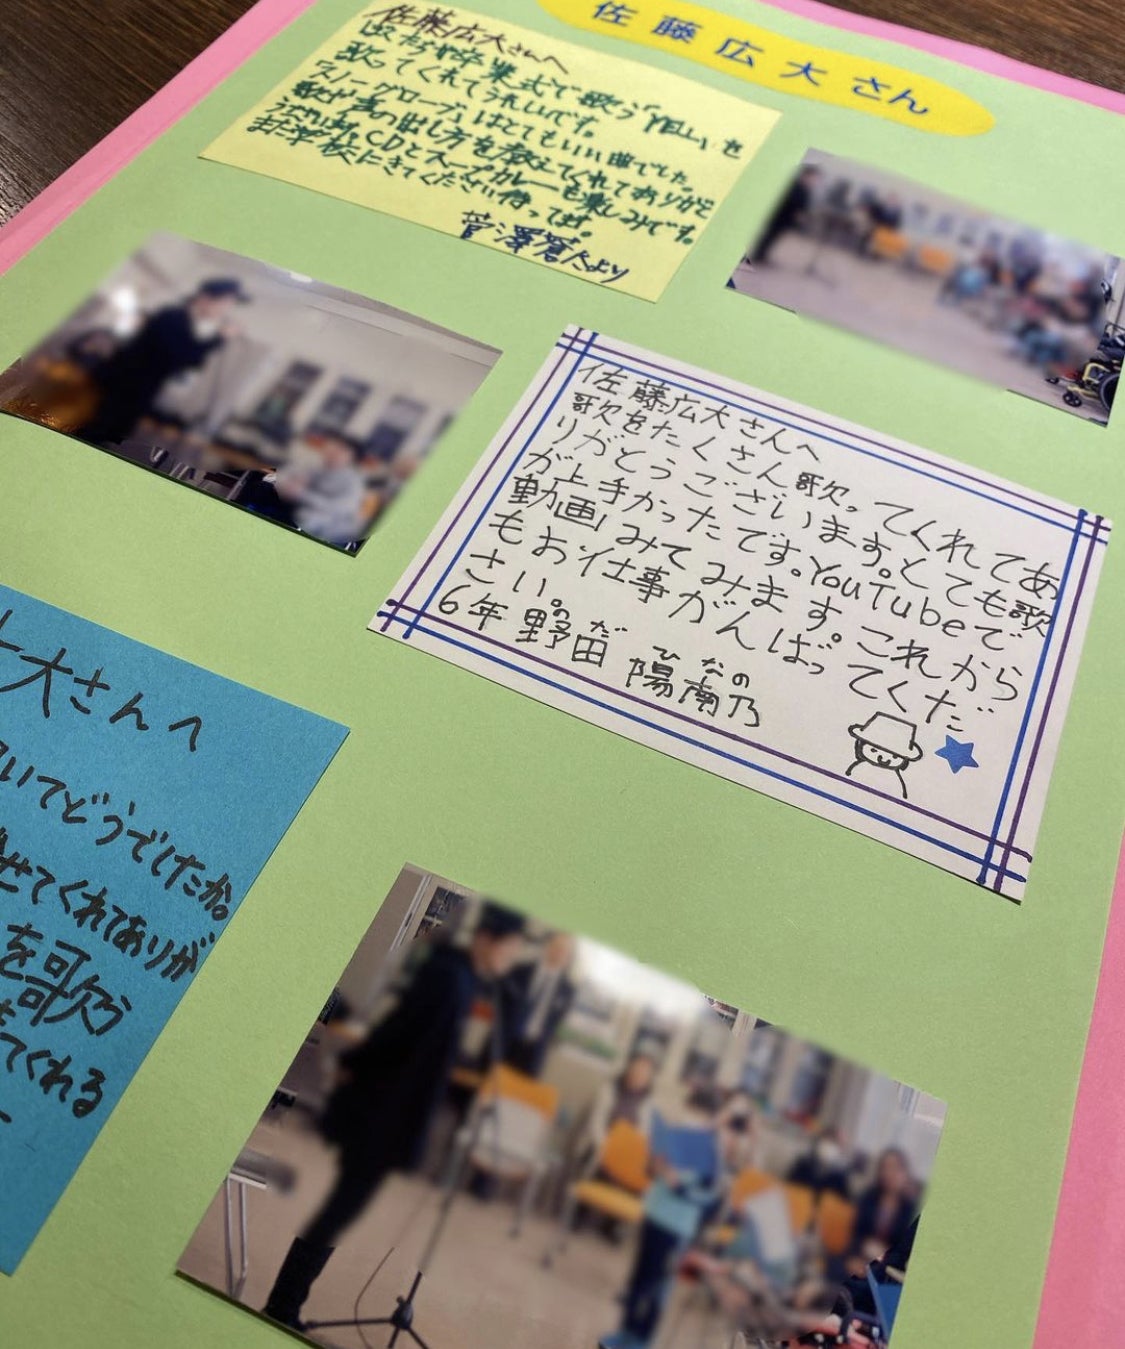 佐藤広大さん
佐藤広大さんへ
ぼくたちが卒業式で歌う「YELL」を
歌ってくれてうれしいです。
スノーグローブはとてもいい曲でした。
歌や声の出し方を教えてくれてありがとう
CDとスープカレーを楽しみです。
また学校にきてください待ってます。
菅澤蒼大より
佐藤広大さんへ
歌をたくさん歌ってくれてあ
りがとうございます。とても歌
が上手かったです。YouTubeで
動画みてみます。これから
もお仕事がんばってくだ
さい。
6年 野田 陽南乃
のだ ひなの
大さんへ
いてどうでしたか。
せてくれてありが
を歌う
てくれる